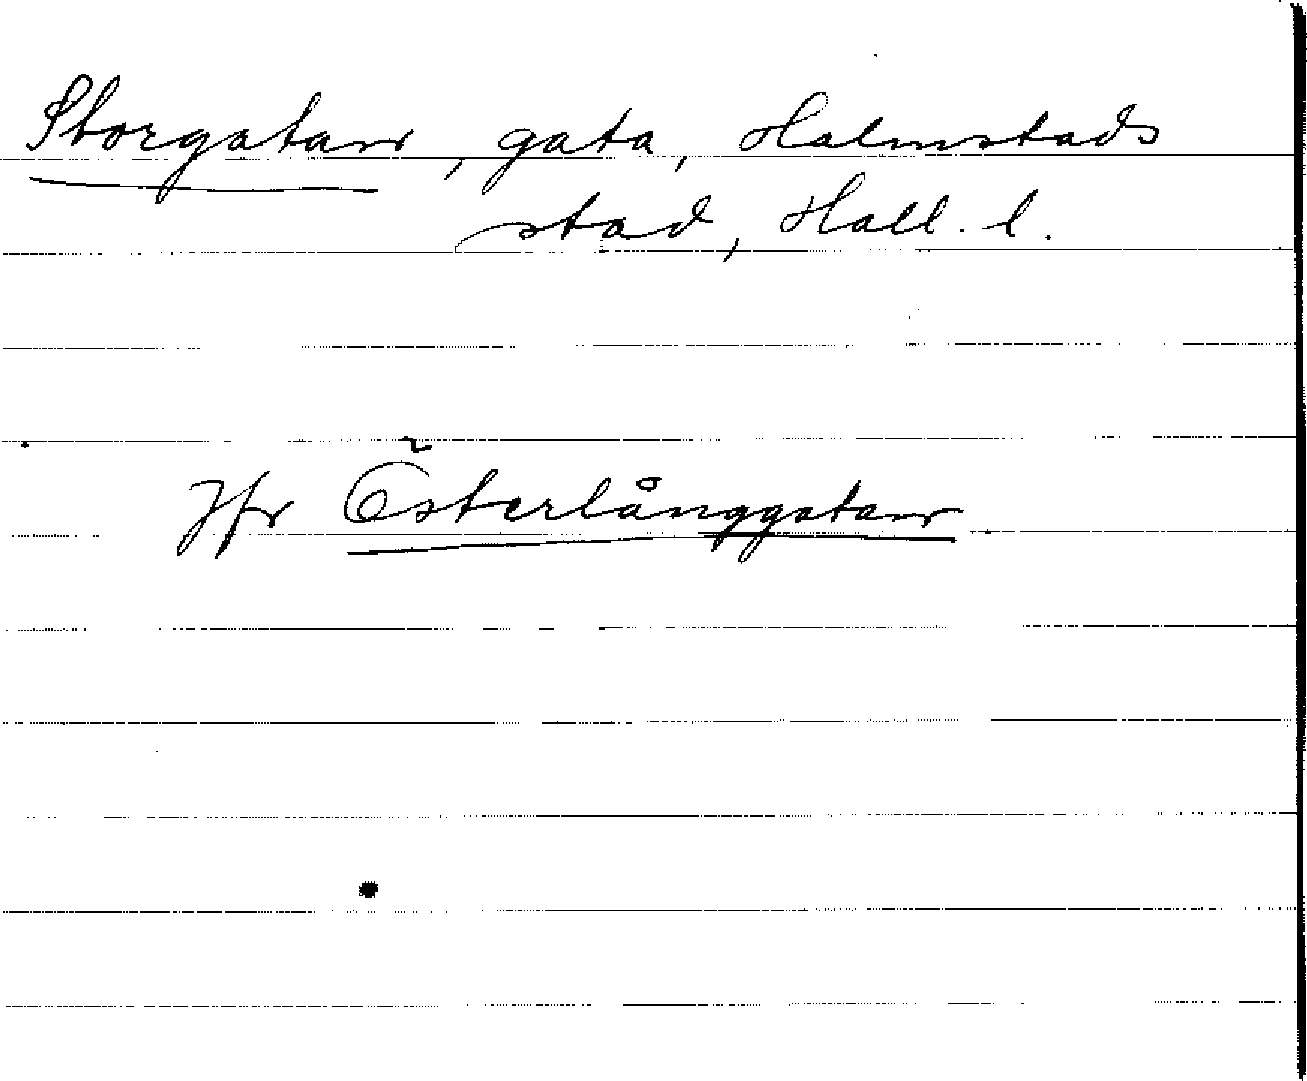 Storgatan, gata, Halmstads
stad, Hall. l.
Jfr Österlånggatan